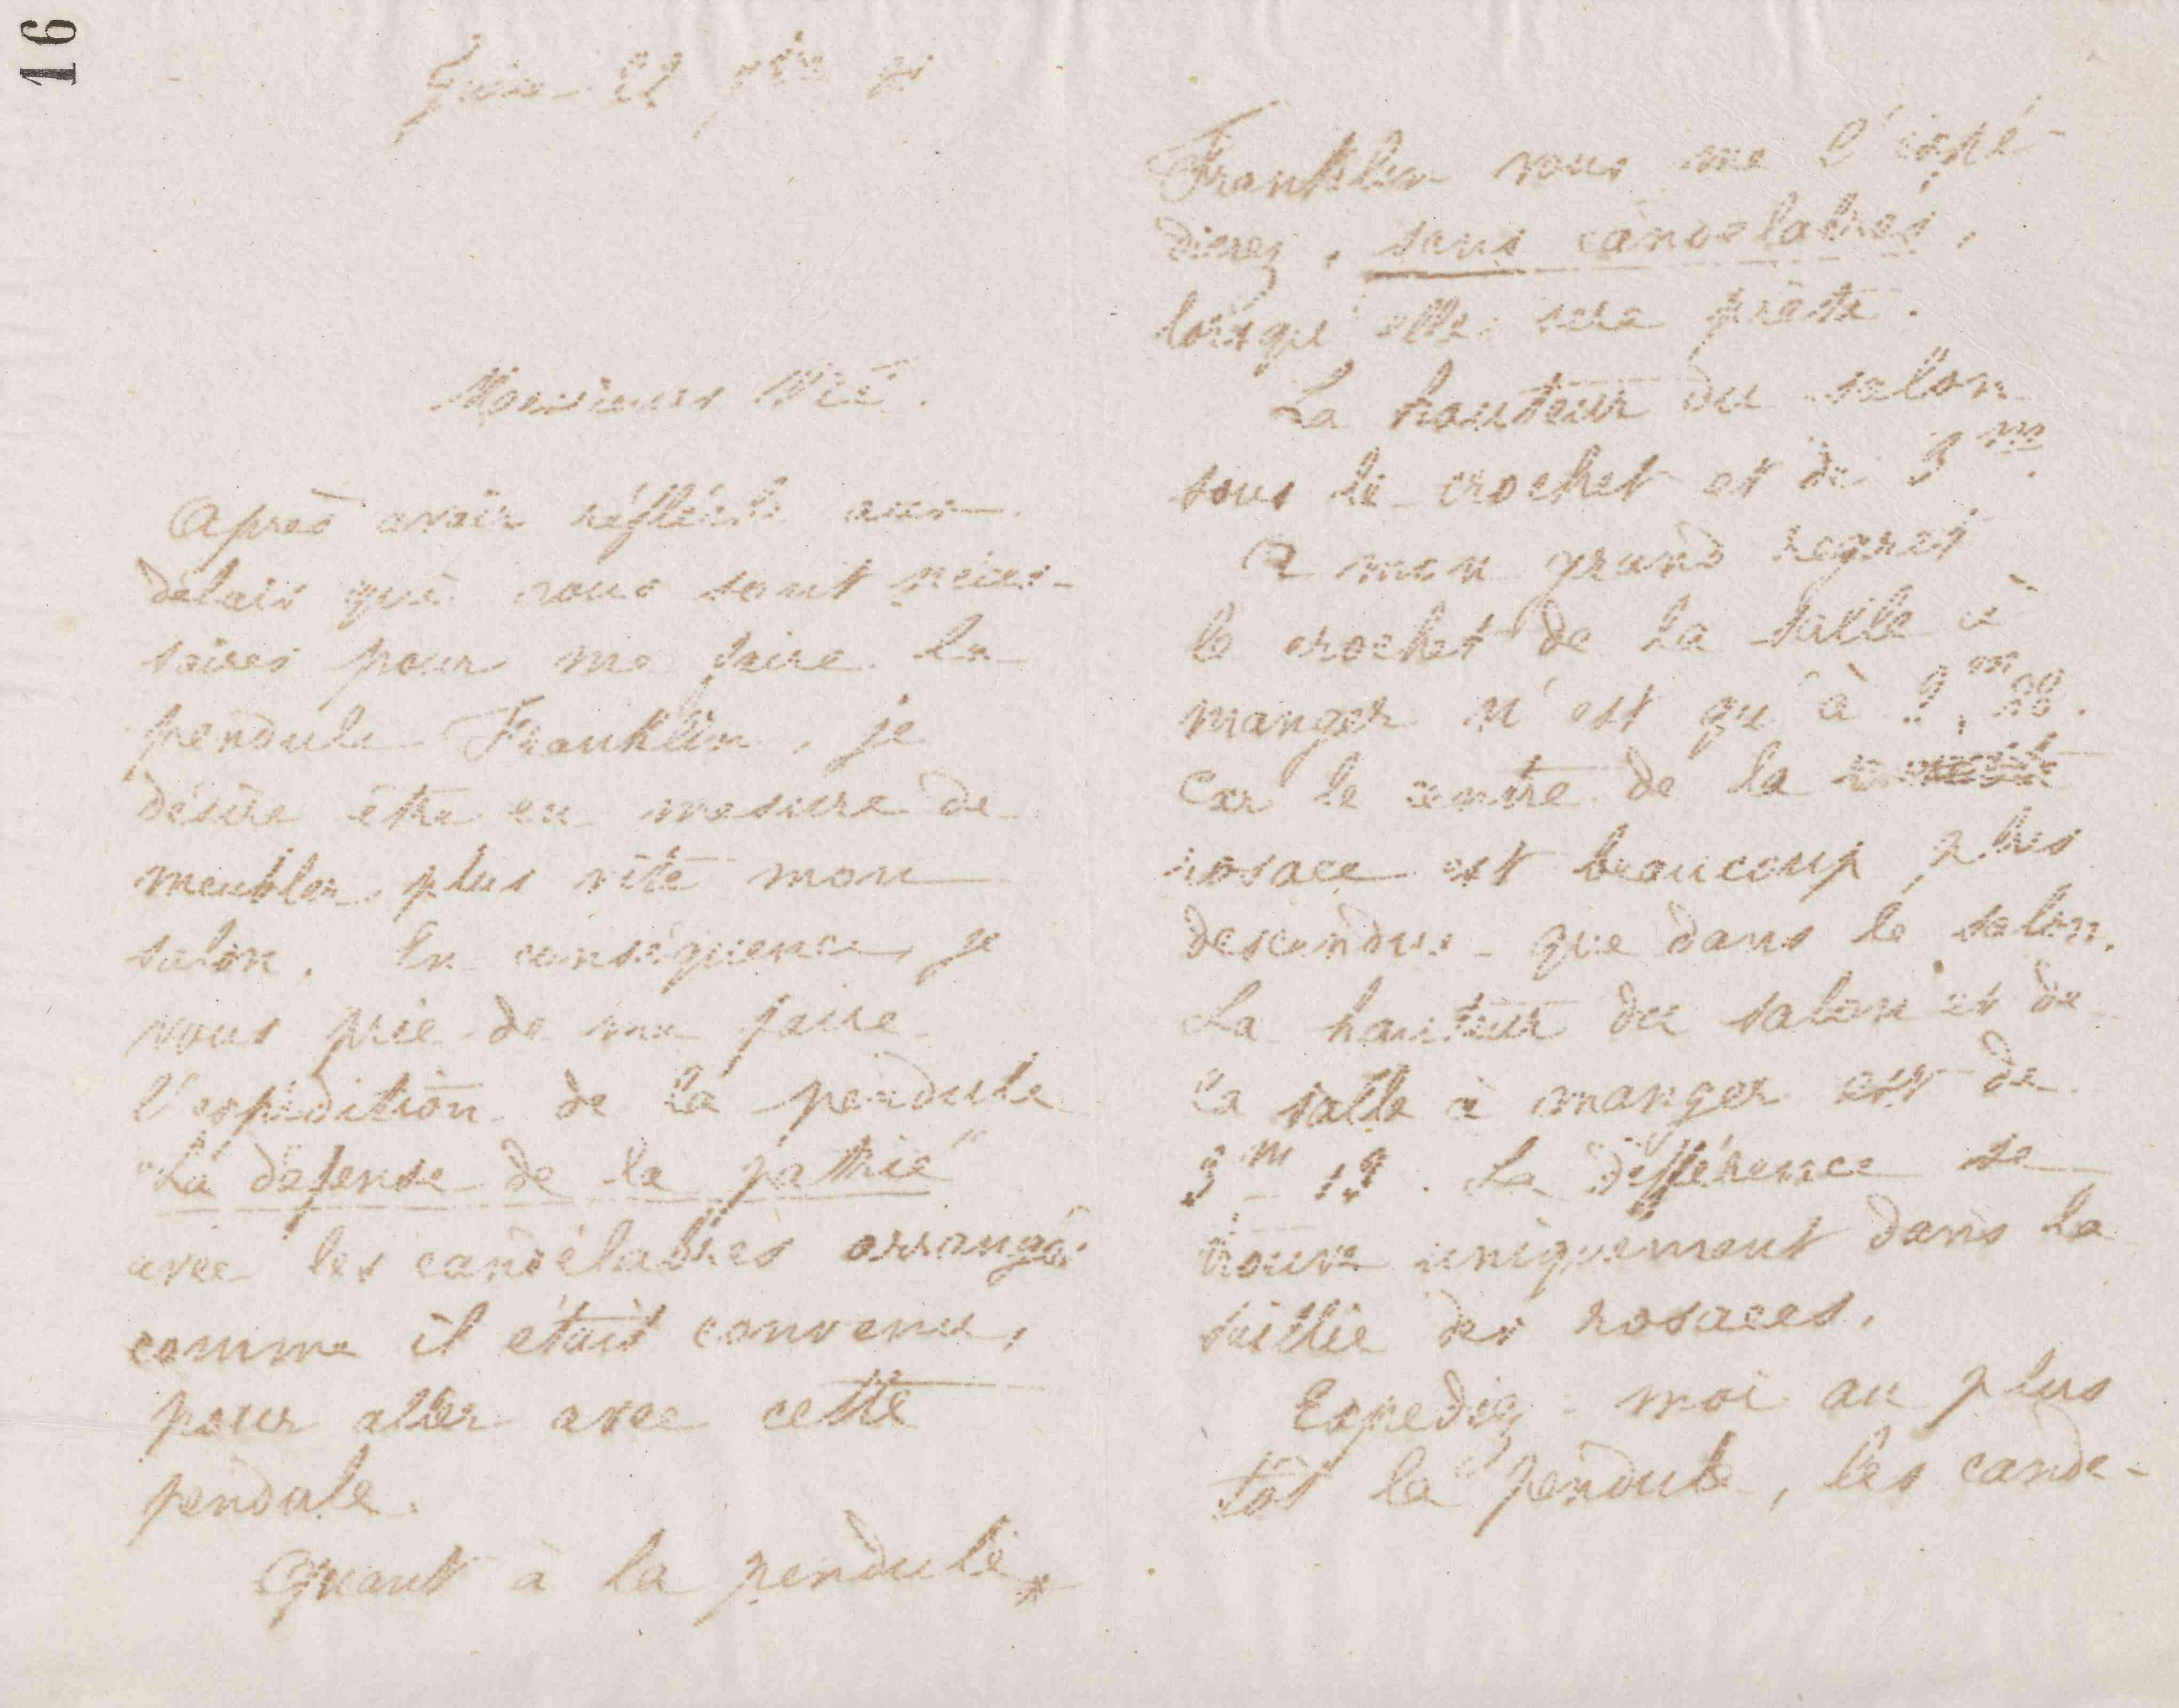 16
Monsieur
Après avoir réfléchi aux
délais que vous sont néces-
saires pour me faire la
pendule Franklin, je
désire être en mesure de
meubler plus vite mon
salon. En conséquence, je
vous prie de me faire
l'expédition de la pendule
"La défense de la patrie"
avec les candélabres arrangés
comme il était convenu,
pour aller avec cette
pendule.
Quant à la pendule
Franklin vous me l'expé-
dierez, sans candelabres,
lorsqu'elle sera prête.
La hauteur du salon
sous le crochet est de 3 m.
A mon grand regret
le crochet de la salle à
manger n'est qu'à
Car le centre de la
rosace est beaucoup plus
descendue que dans le salon.
La hauteur du salon et de
la salle à manger est de
3 m La différence se
trouve uniquement dans la
saillie des rosaces.
Expediez-moi au plus
tôt la pendule, les cande-